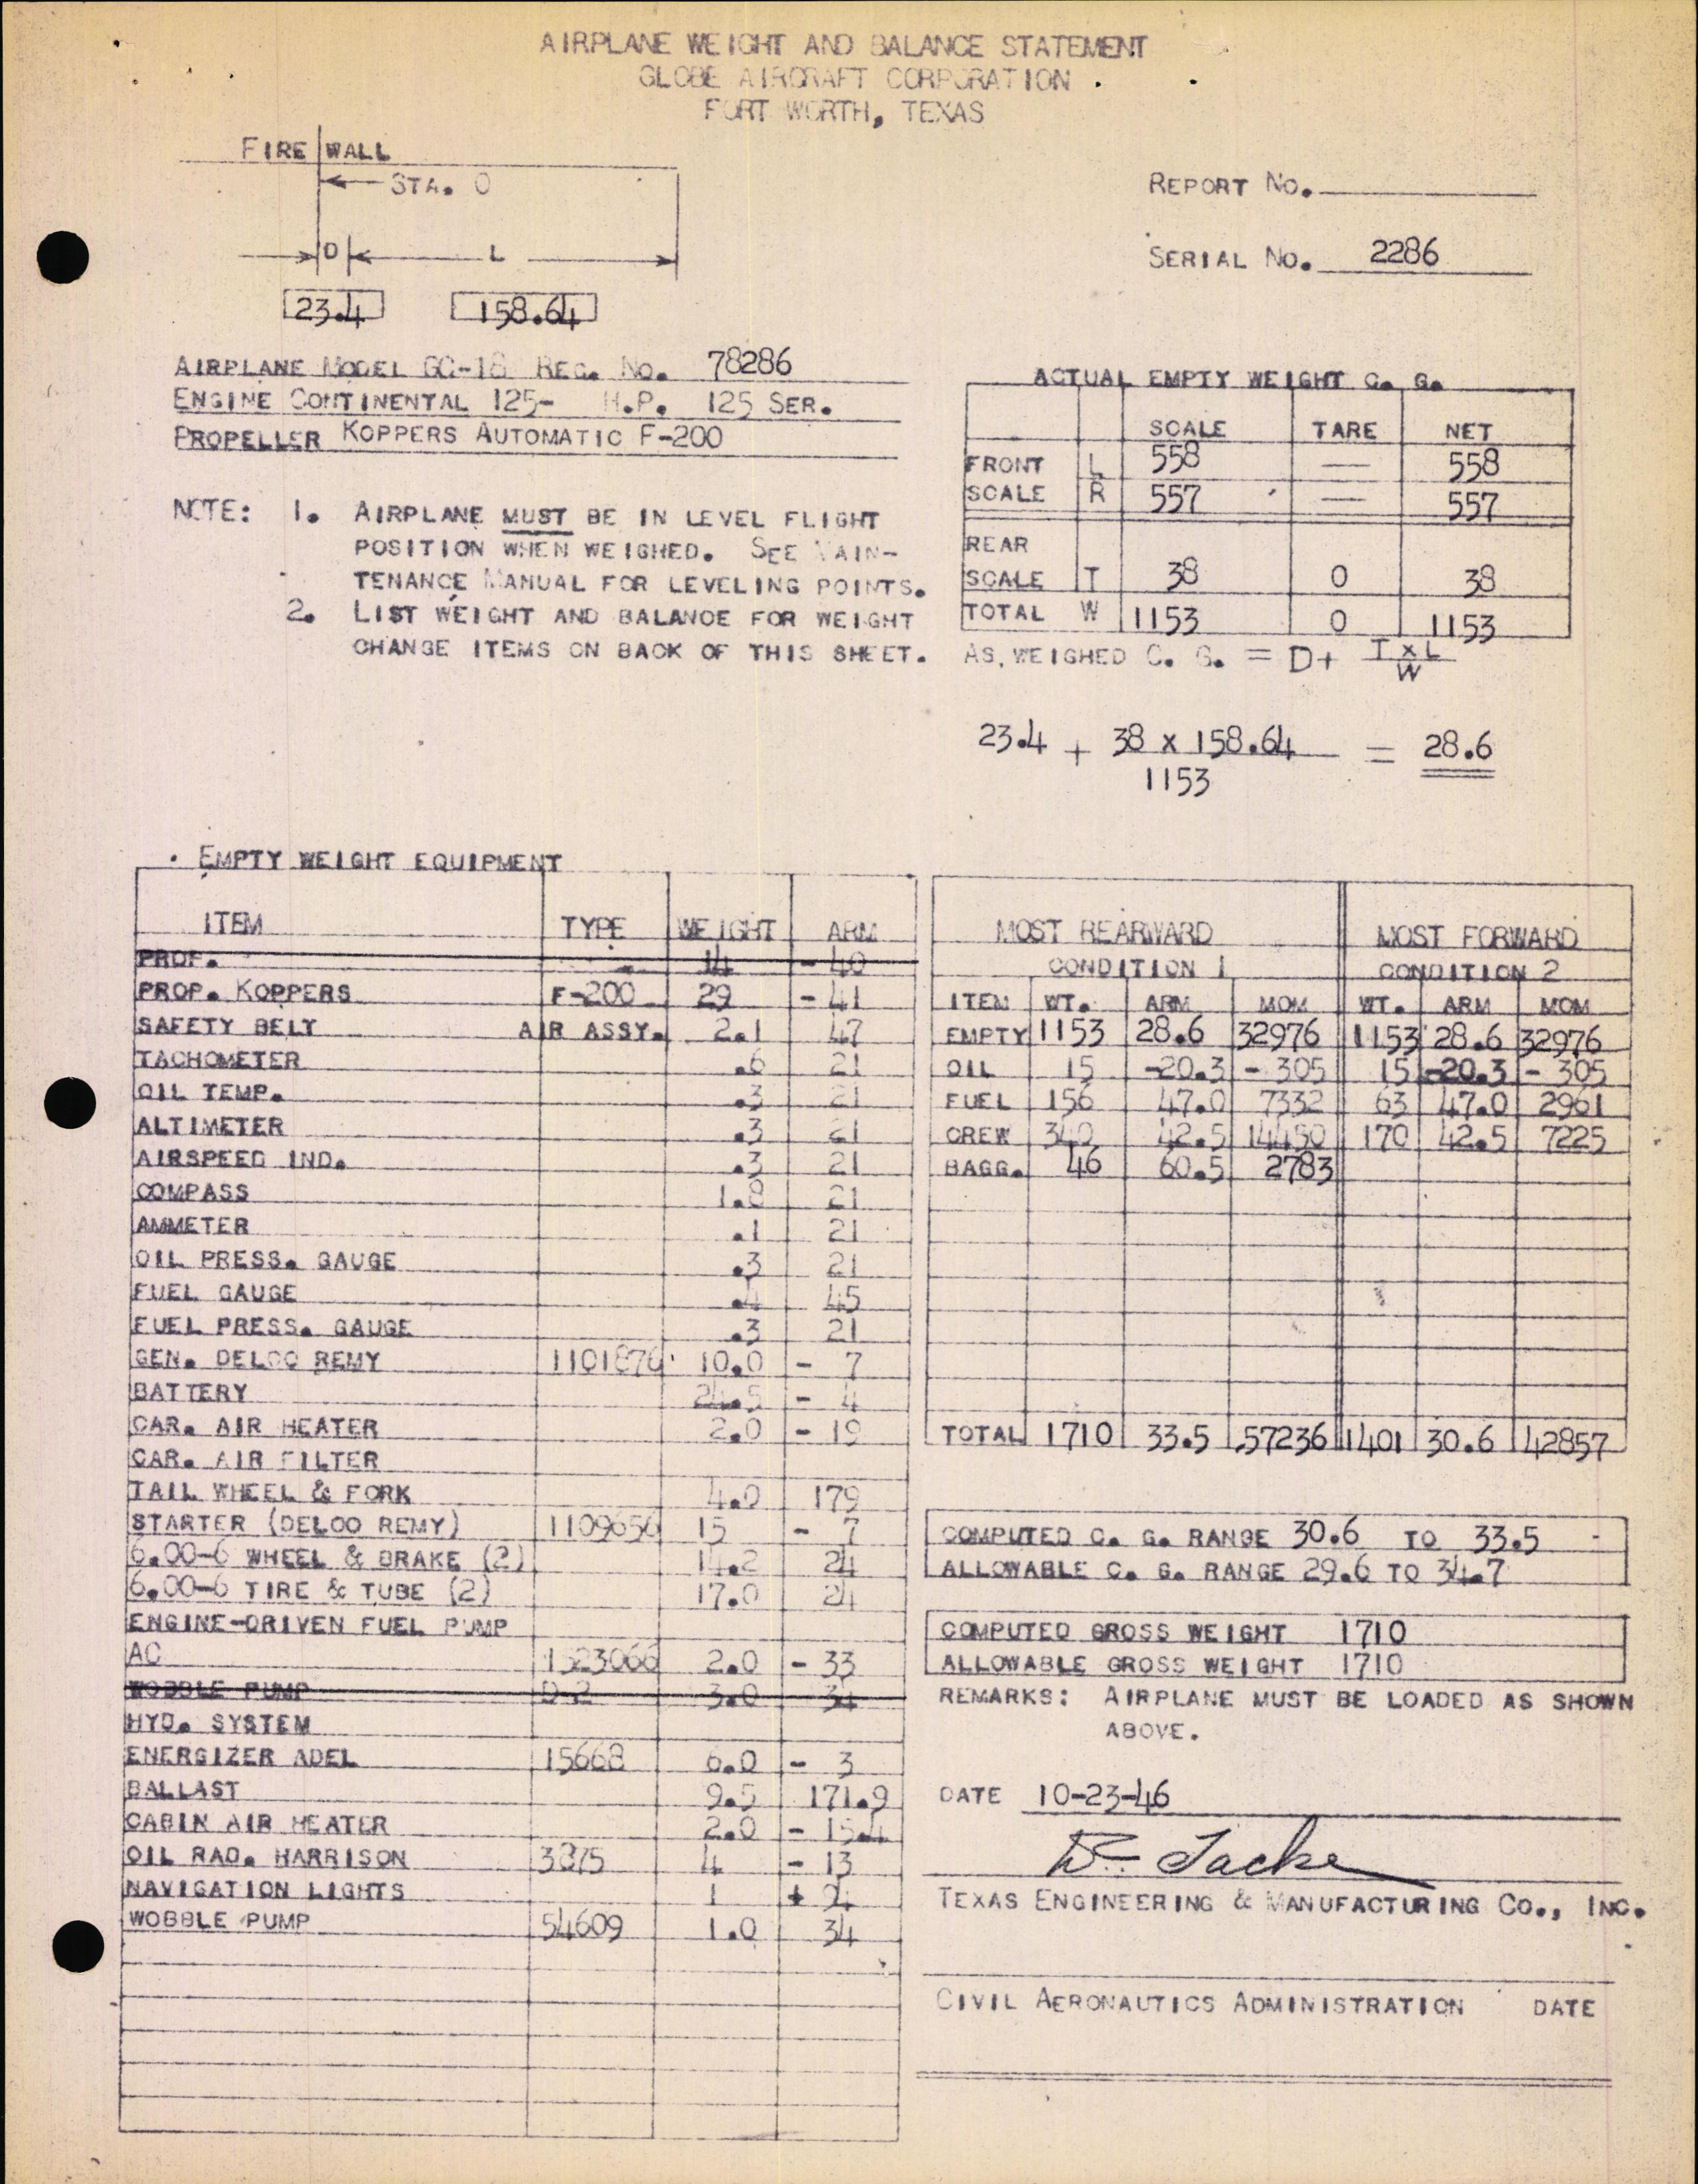 AIRPLANE WEIGHT AND BALANCE STATEMENT
GLOBE AIRCRAFT CORPORATION
FORT WORTH, TEXAS
FIRE WALL
STA. 0
D L
23.4 158.64
REPORT NO.
SERIAL NO. 2286
AIRPLANE MODEL GC-1B REG. NO. 78286
ENGINE CONTINENTAL 125- H.P. 125 SER.
PROPELLER KOPPERS AUTOMATIC F-200
NOTE: 1. AIRPLANE MUST BE IN LEVEL FLIGHT
POSITION WHEN WEIGHED. SEE MAIN-
TENANCE MANUAL FOR LEVELING POINTS.
2. LIST WEIGHT AND BALANCE FOR WEIGHT
CHANGE ITEMS ON BACK OF THIS SHEET.
ACTUAL EMPTY WEIGHT C. G.
SCALE TARE NET
FRONT L 558 — 558
SCALE R 557 — 557
REAR
SCALE T 38 0 38
TOTAL W 1153 0 1153
AS WEIGHED C. G. = D+ T x L
W
23.4 + 38 x 158.64 = 28.6
1153
EMPTY WEIGHT EQUIPMENT
ITEM TYPE WEIGHT ARM
PROP. 14 - 40
PROP. KOPPERS F-200 29 - 41
SAFETY BELT AIR ASSY. 2.1 47
TACHOMETER .6 21
OIL TEMP. .3 21
ALTIMETER .3 21
AIRSPEED IND. .3 21
COMPASS 1.8 21
AMMETER .1 21
OIL PRESS. GAUGE .3 21
FUEL GAUGE .4 45
FUEL PRESS. GAUGE .3 21
GEN. DELCO REMY 1101876 10.0 - 7
BATTERY 24.5 - 4
CAR. AIR HEATER 2.0 - 19
CAR. AIR FILTER
TAIL WHEEL & FORK 4.0 179
STARTER (DELCO REMY) 1109656 15 - 7
6.00-6 WHEEL & BRAKE (2) 14.2 24
6.00-6 TIRE & TUBE (2) 17.0 24
ENGINE-DRIVEN FUEL PUMP
AC 1523066 2.0 - 33
WOBBLE PUMP D-2 3.0 34
HYD. SYSTEM
ENERGIZER ADEL 15668 6.0 - 3
BALLAST 9.5 171.9
CABIN AIR HEATER 2.0 - 15.4
OIL RAD. HARRISON 3875 4 - 13
NAVIGATION LIGHTS 1 +
WOBBLE PUMP 54609 1.0 34
MOST REARWARD MOST FORWARD
CONDITION 1 CONDITION 2
ITEM WT. ARM MOM WT. ARM MOM
EMPTY 1153 28.6 32976 1153 28.6 32976
OIL 15 -20.3 - 305 15 -20.3 - 305
FUEL 156 47.0 7332 63 47.0 2961
CREW 340 42.5 14450 170 42.5 7225
BAGG. 46 60.5 2783
TOTAL 1710 33.5 57236 1401 30.6 42857
COMPUTED C. G. RANGE 30.6 TO 33.5
ALLOWABLE C. G. RANGE 29.6 TO 34.7
COMPUTED GROSS WEIGHT 1710
ALLOWABLE GROSS WEIGHT 1710
REMARKS: AIRPLANE MUST BE LOADED AS SHOWN
ABOVE.
DATE 10-23-46
TEXAS ENGINEERING & MANUFACTURING CO., INC.
CIVIL AERONAUTICS ADMINISTRATION DATE